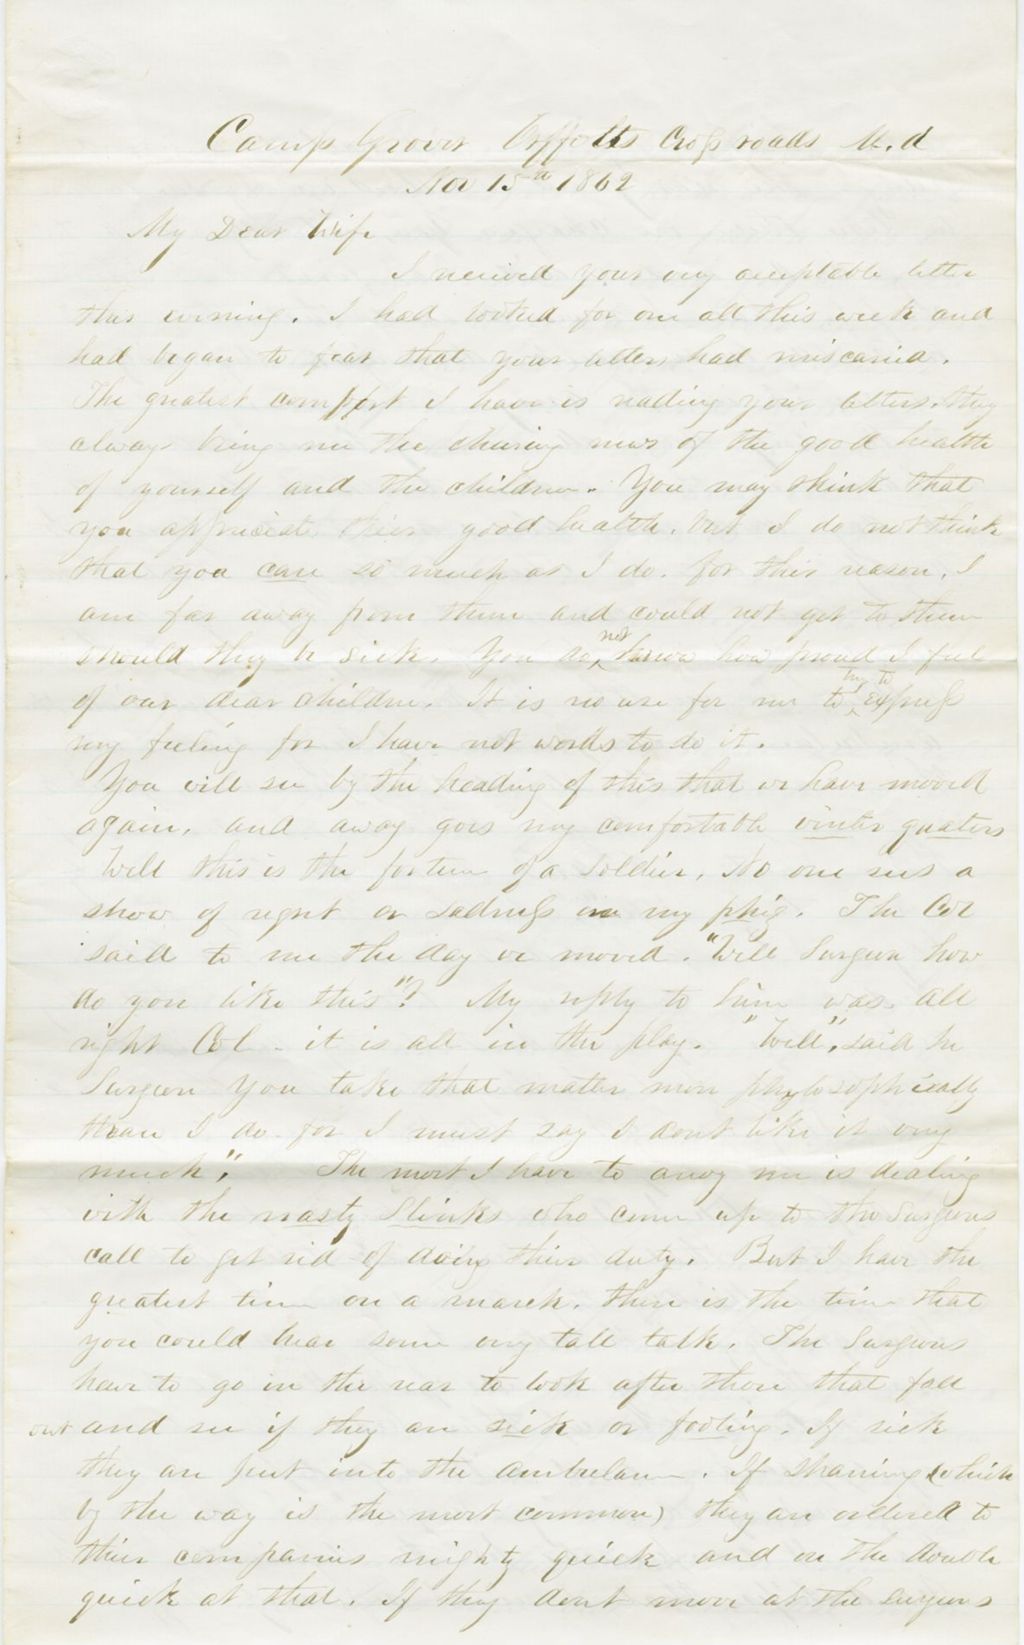 Camp Grover Orffolts Cross roads M.d
Nov 15th 1862
My Dear Wife
I recived your very acceptable letter
this evening. I had looked for one all this week and
had began to fear that your letters had miscaried.
The greatest comfort I have is reading your letters. they
always bring me the chearing news of the good health
of yourself and the children. You may think that
you appreciat thier good health, but I do not think
that you can so much as I do. for this reason, I
am far away from them and could not get to them
should they be sick. You do not know how proud I feel
of our dear children. It is no use for me to try to express
my feeling for I have not words to do it.
You will see by the heading of this that we have moved
again, and away goes my comfortable winter quaters
Well this is the fortune of a Soldier, No one sees a
show of regret or sadness on my phiz. The Col
said to me the day we moved. "Well Surgeon how
do you like this"? My reply to him was. All
right Col - it is all in the play. "Well", said he
Surgeon You take that matter more phylosophically
than I do for I must say I dont like it very
much". The most I have to anoy me is dealing
with the nasty Slinks who come up to the Surgeons
call to get rid of doing thier duty. But I have the
greatest time on a march. there is the time that
you could hear some very tall talk. The Surgeons
have to go in the rear to look after those that fall
out and see if they are sick or fooling. If sick
they are put into the ambulance. If shaming (which
by the way is the most common) they are ordered to
thier companies mighty quick and on the double
quick at that. If they dont move at the surgeons